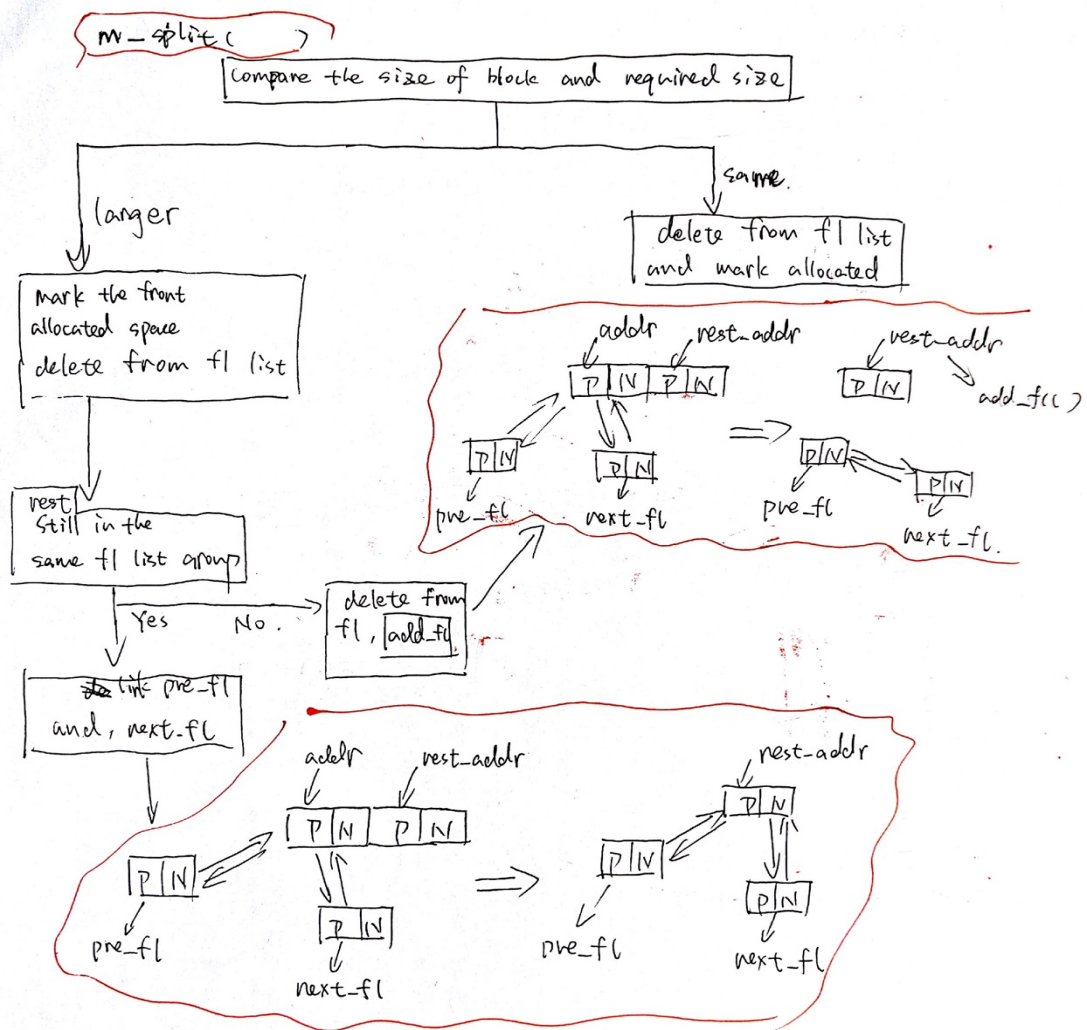 m_split( )
compare the size of block and required size
larger
same.
delete from fl list
and mark allocated
mark the front
allocated space
delete from fl list
addr
rest_addr
P N P N
P N
pre_fl
P N
next_fl
rest_addr
P N
add_fl()
P N
pre_fl
P N
next_fl.
rest
still in the
same fl list group
Yes
No.
delete from
fl, add_fl
link pre_fl
and, next_fl
addr
rest_addr
P N P N
P N
pre_fl
P N
next_fl
rest_addr
P N
P N
pre_fl
P N
next_fl